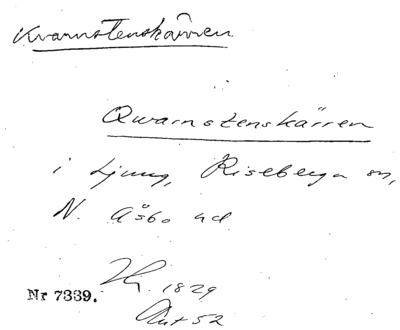 Kvarnstenskärren
Qwarnstenskärren
i Ljung, Riseberga sn,
N. Åsbo hd
1829
Nr 7339.
Akt 52